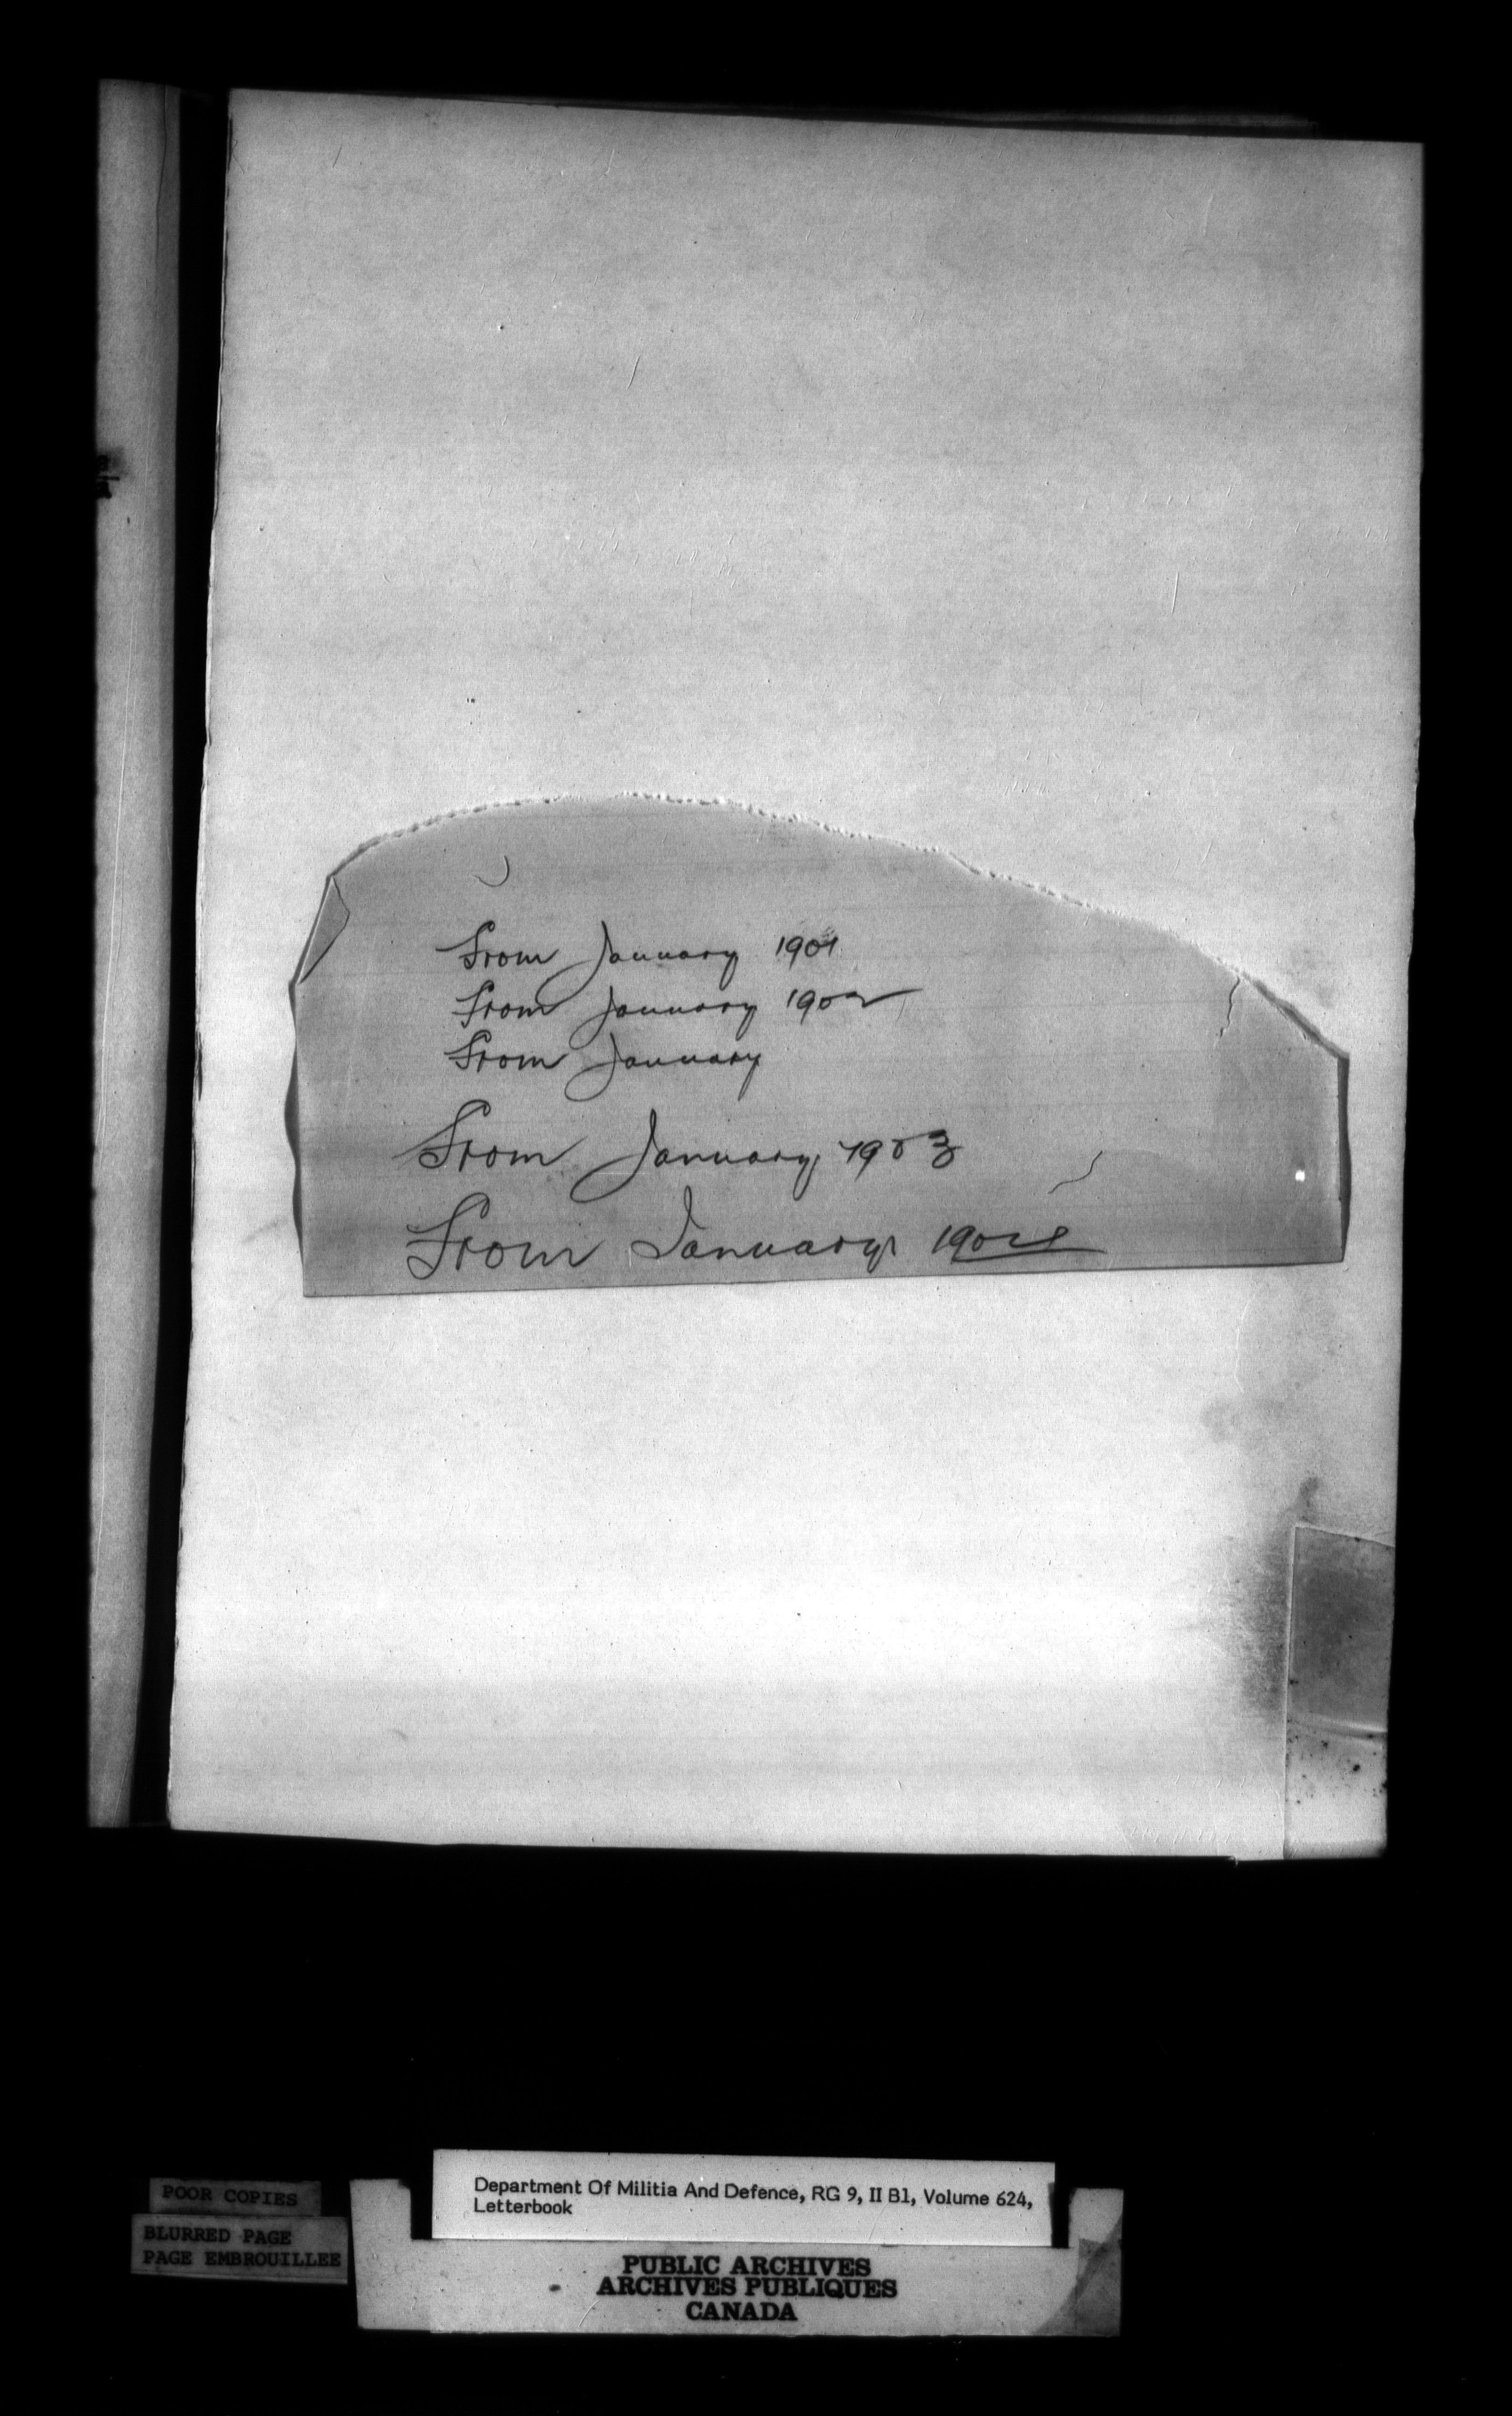 From January 1901
From January 1902
From January
From January 1903
From January 1904
POOR COPIES
BLURRED PAGE
PAGE EMBROUILLEE
Department Of Militia And Defence, RG 9, II B1, Volume 624,
Letterbook
PUBLIC ARCHIVES
ARCHIVES PUBLIQUES
CANADA